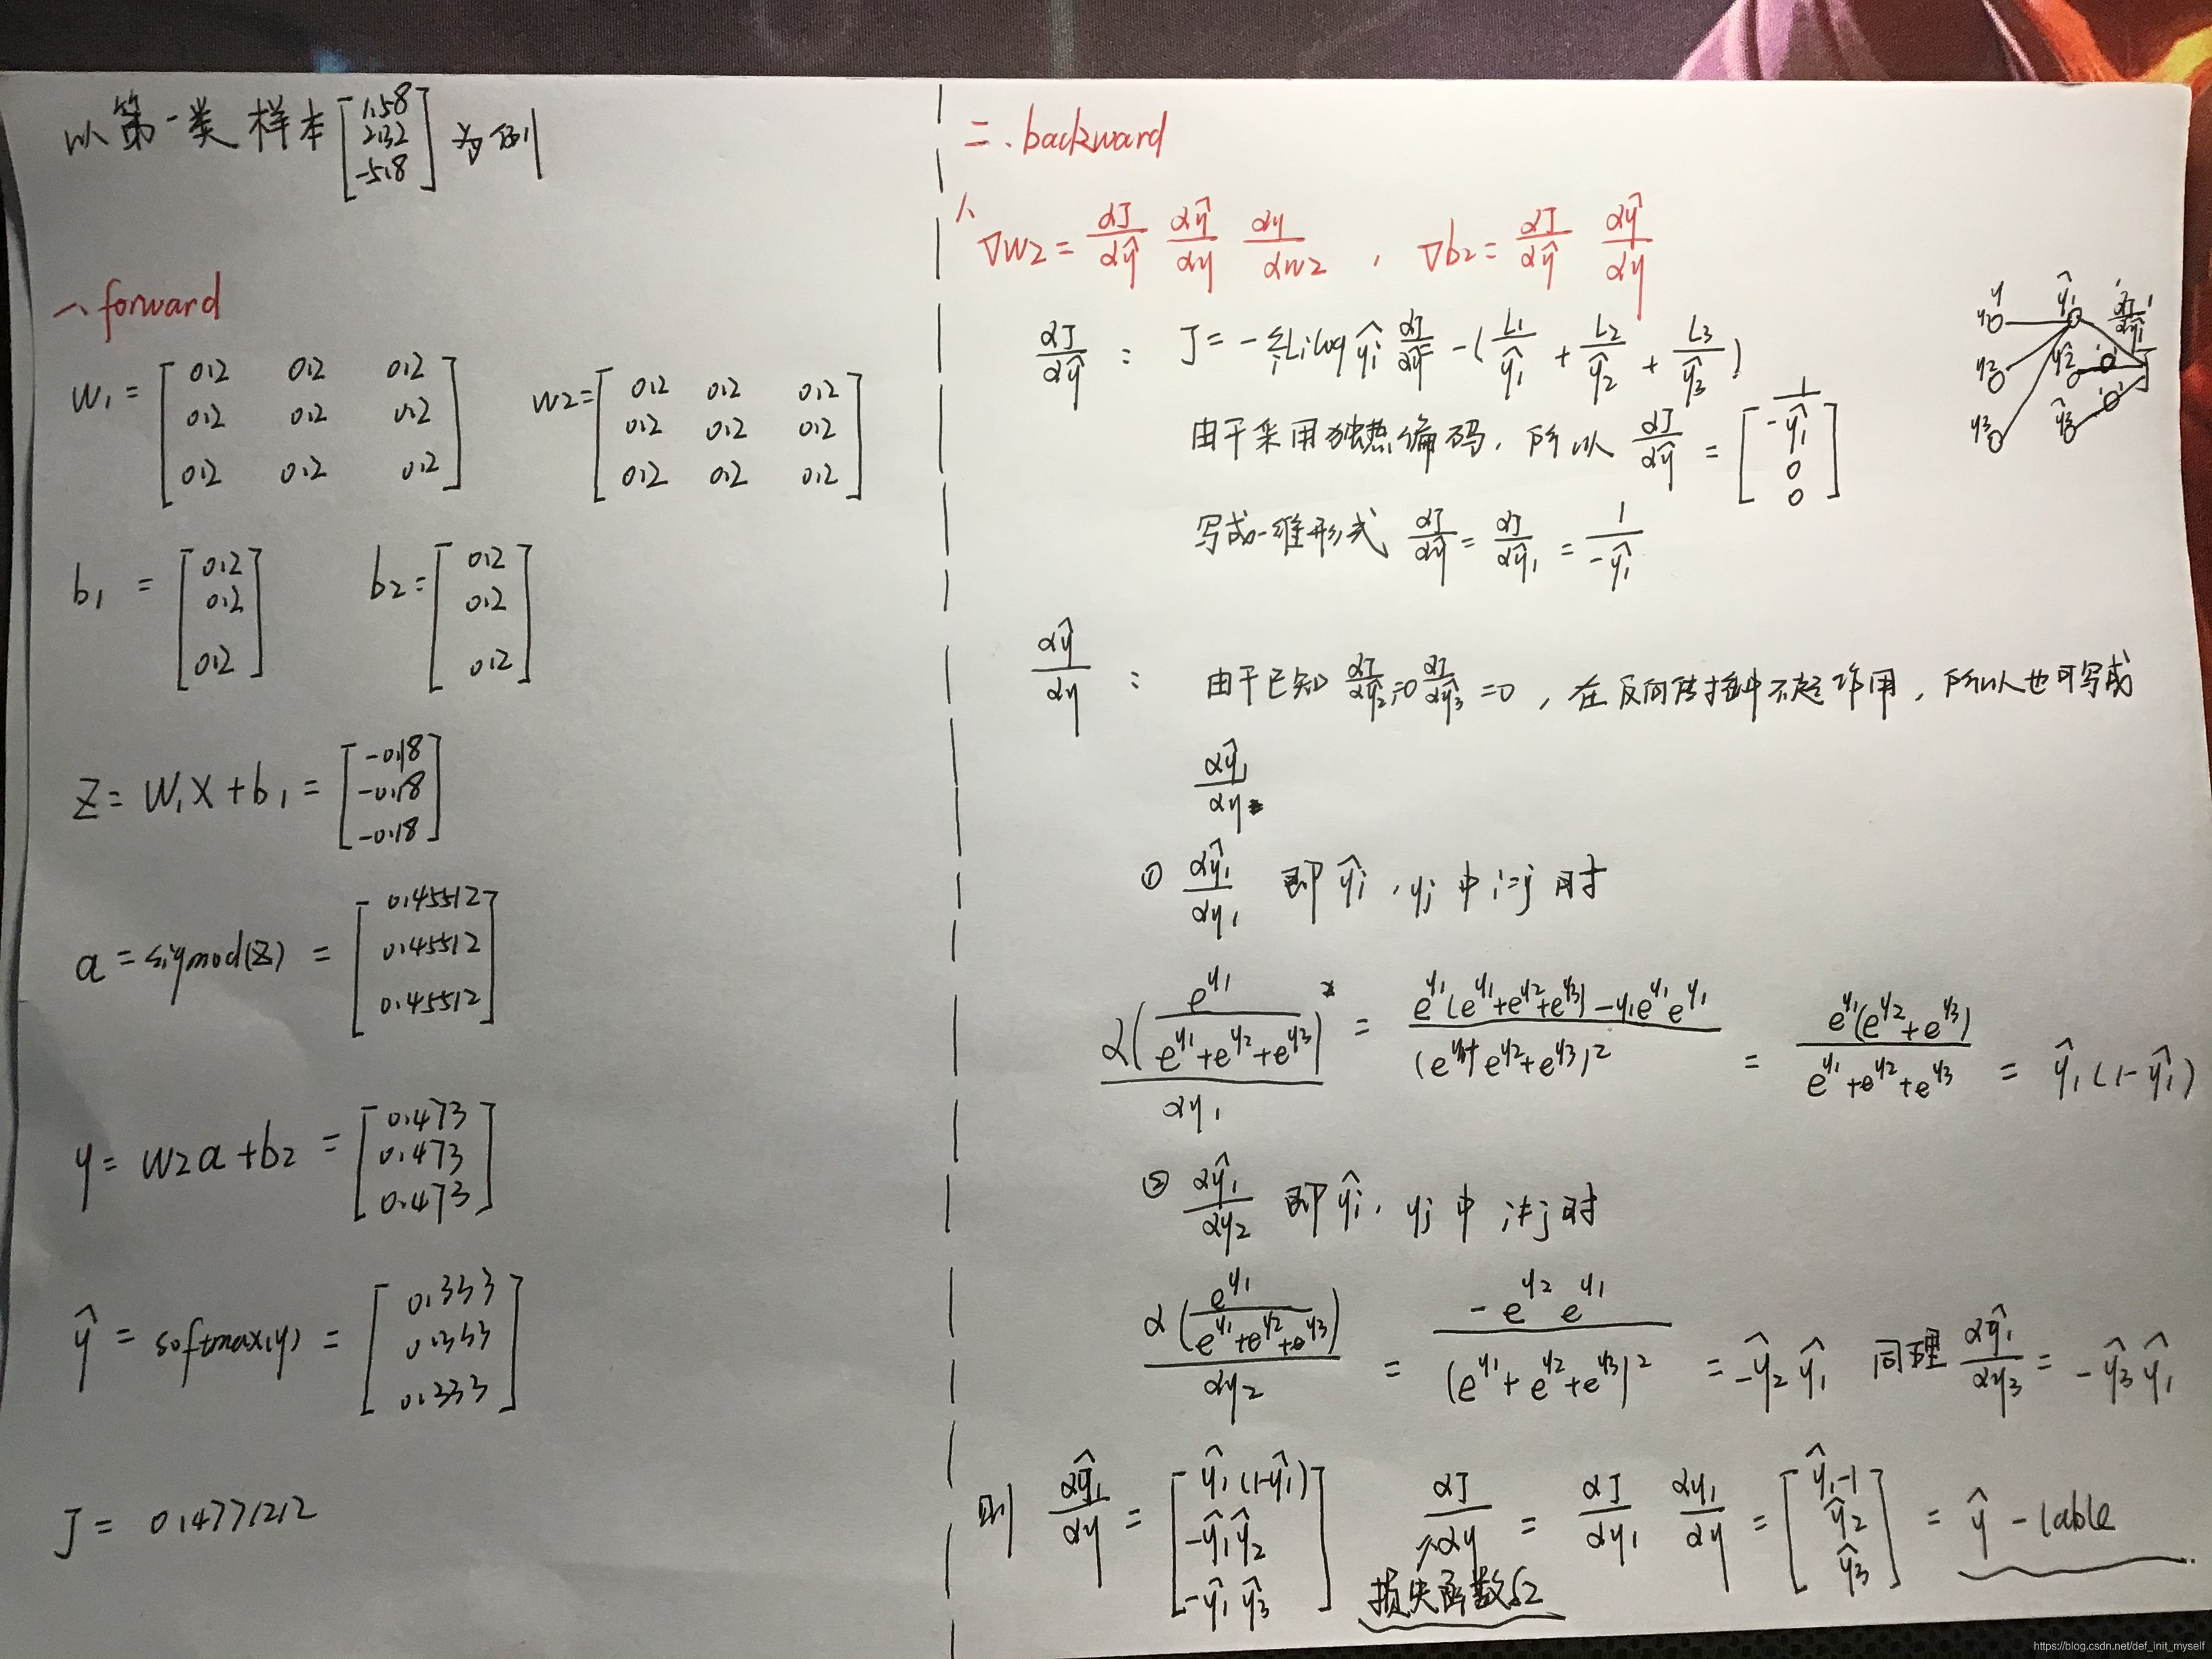 以第一类样本 [1.58 2.32 -5.8] 为例
一、forward
W1 = [0.2 0.2 0.2; 0.2 0.2 0.2; 0.2 0.2 0.2] W2 = [0.2 0.2 0.2; 0.2 0.2 0.2; 0.2 0.2 0.2]
b1 = [0.2 0.2 0.2] b2 = [0.2 0.2 0.2]
Z = W1X + b1 = [-0.18 -0.18 -0.18]
a = sigmod(Z) = [0.45512 0.45512 0.45512]
y = W2a + b2 = [0.473 0.473 0.473]
ŷ = softmax(y) = [0.333 0.333 0.333]
J = 0.4771212
二. backward
1、 ∇W2 = αJ/αŷ αŷ/αy αy/αW2 , ∇b2 = αJ/αŷ αŷ/αy
αJ/αŷ : J = -ΣLi log ŷi αJ/αŷ = -(L1/ŷ1 + L2/ŷ2 + L3/ŷ3)
由于采用独热编码, 所以 αJ/αŷ = [1/-ŷ1 0 0]
写成一维形式 αJ/αŷ = αJ/αŷ1 = 1/-ŷ1
y ŷ1 αJ/αŷ1
y2 ŷ2 J
y3 ŷ3
αŷ/αy : 由于已知 αJ/αŷ2=0 αJ/αŷ3 =0 , 在反向传播中不起作用, 所以也可写成
αŷ1/αy
① αŷ1/αy1 即 ŷi , yj 中 i=j 时
α(e^y1/(e^y1+e^y2+e^y3))/αy1 = (e^y1(e^y1+e^y2+e^y3) - y1e^y1e^y1)/(e^y1+e^y2+e^y3)^2 = e^y1(e^y2+e^y3)/(e^y1+e^y2+e^y3) = ŷ1(1-ŷ1)
② αŷ1/αy2 即 ŷi , yj 中 i≠j 时
α(e^y1/(e^y1+e^y2+e^y3))/αy2 = -e^y2 e^y1/(e^y1+e^y2+e^y3)^2 = -ŷ2ŷ1 同理 αŷ1/αy3 = -ŷ3ŷ1
则 αŷ1/αy = [ŷ1(1-ŷ1) -ŷ1ŷ2 -ŷ1ŷ3] αJ/αy = αJ/αy1 αy1/αy = [ŷ1-1 ŷ2 ŷ3] = ŷ - lable
损失函数δ2
https://blog.csdn.net/def_init_myself